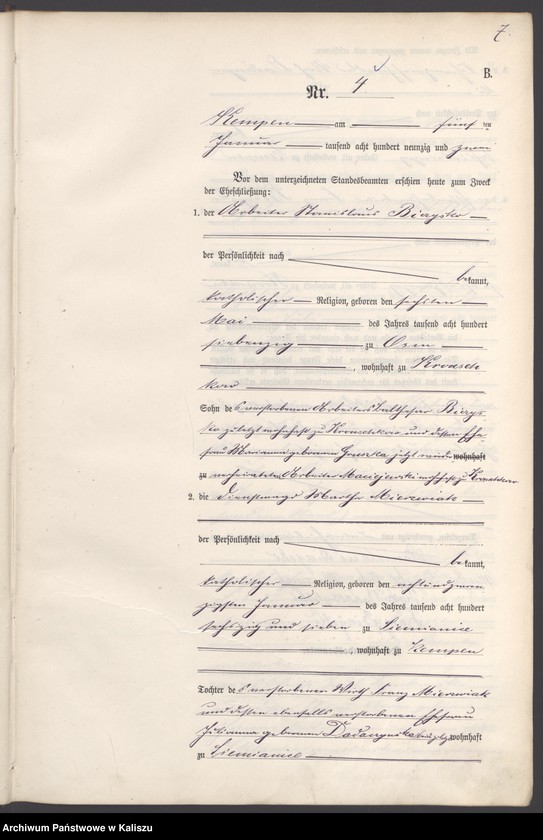 7.
B.
Nr. 4
Kempen am fünf ten
Januar tausend acht hundert neunzig und zwei
Vor dem unterzeichneten Standesbeamten erschien heute zum Zweck
der Eheschließung:
1. der Arbeiter Stanislaus Biezysko
der Persönlichkeit nach
bekannt,
katholischer Religion, geboren den sechsten
Mai des Jahres tausend acht hundert
siebenzig zu Osin
, wohnhaft zu Kroasch
kow
Sohn des verstorbenen Arbeiters Balthasar
ko zuletzt wohnhaft zu und dessen Ehe
frau Marianna geborenen jetzt wieder wohnhaft
zu verheirateten Arbeiter Maciejewski wohnhaft zu
2. die Dienstmagd Martha Mierzwiak
der Persönlichkeit nach
bekannt,
katholischer Religion, geboren den achtundzwan
zigsten Januar des Jahres tausend acht hundert
sechszig und sieben zu Siemianice
, wohnhaft zu Kempen
Tochter des verstorbenen Wirth Franz Mierzwiak
und dessen ebenfalls verstorbenen Ehefrau
Julianna geborenen zuletzt wohnhaft
zu Siemianice
Archiwum Państwowe w Kaliszu